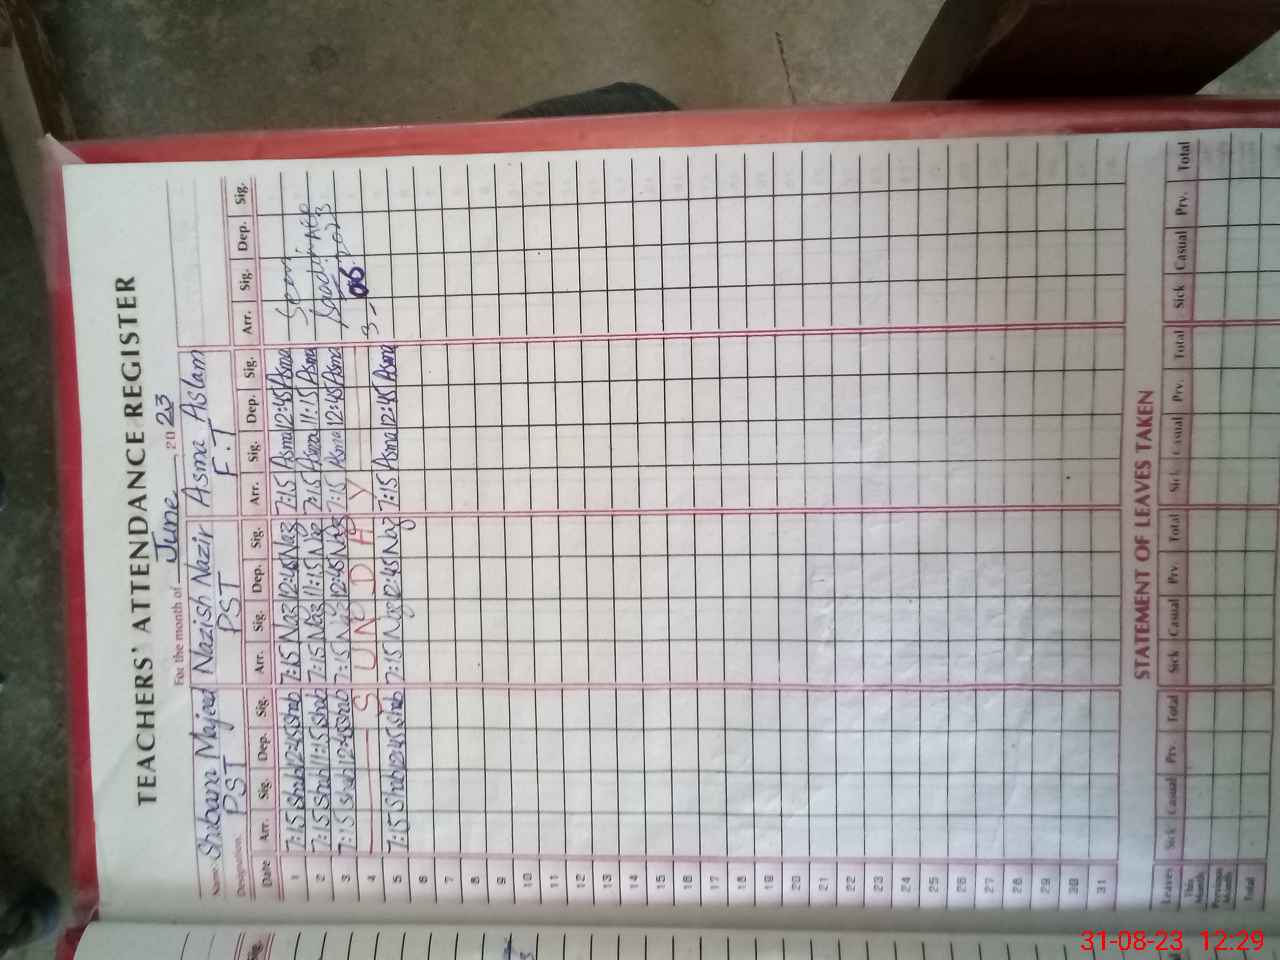 TEACHERS' ATTENDANCE REGISTER
For the month of June 2023
Name. Shibana Majeed Nazish Nazir Asma Aslam
Designation. PST PST F.T
Date Arr. Sig. Dep. Sig. Arr. Sig. Dep. Sig. Arr. Sig. Dep. Sig. Arr. Sig. Dep. Sig.
1 7:15 Shab 12:45 Shab 7:15 Naz 12:45 Naz 7:15 Asma 12:45 Asma
2 7:15 Shab 11:15 Shab 7:15 Naz 11:15 Naz 7:15 Asma 11:15 Asma
3 7:15 Shab 12:45 Shab 7:15 Naz 12:45 Naz 7:15 Asma 12:45 Asma 2023
4 SUNDAY 3-06
5 7:15 Shab 12:45 Shab 7:15 Naz 12:45 Naz 7:15 Asma 12:45 Asma
6
7
8
9
10
11
12
13
14
15
16
17
18
19
20
21
22
23
24
25
26
27
28
29
30
31
STATEMENT OF LEAVES TAKEN
Leaves Sick Casual Prv. Total Sick Casual Prv. Total Sick Casual Prv. Total Sick Casual Prv. Total
This Month
Previous Month
Total
Sig.
31-08-23 12:29